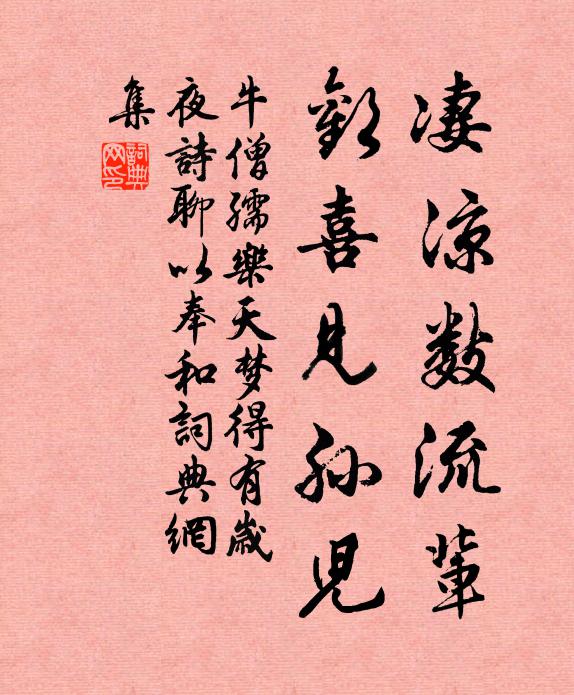 凄涼數流輩
歡喜見孫兒
牛僧孺樂天夢得有歲
夜詩聊以奉和詞典網
集
詞典
网印